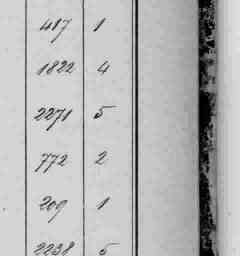 417 1
1822 4
2271 5
772 2
209 1
2238 5